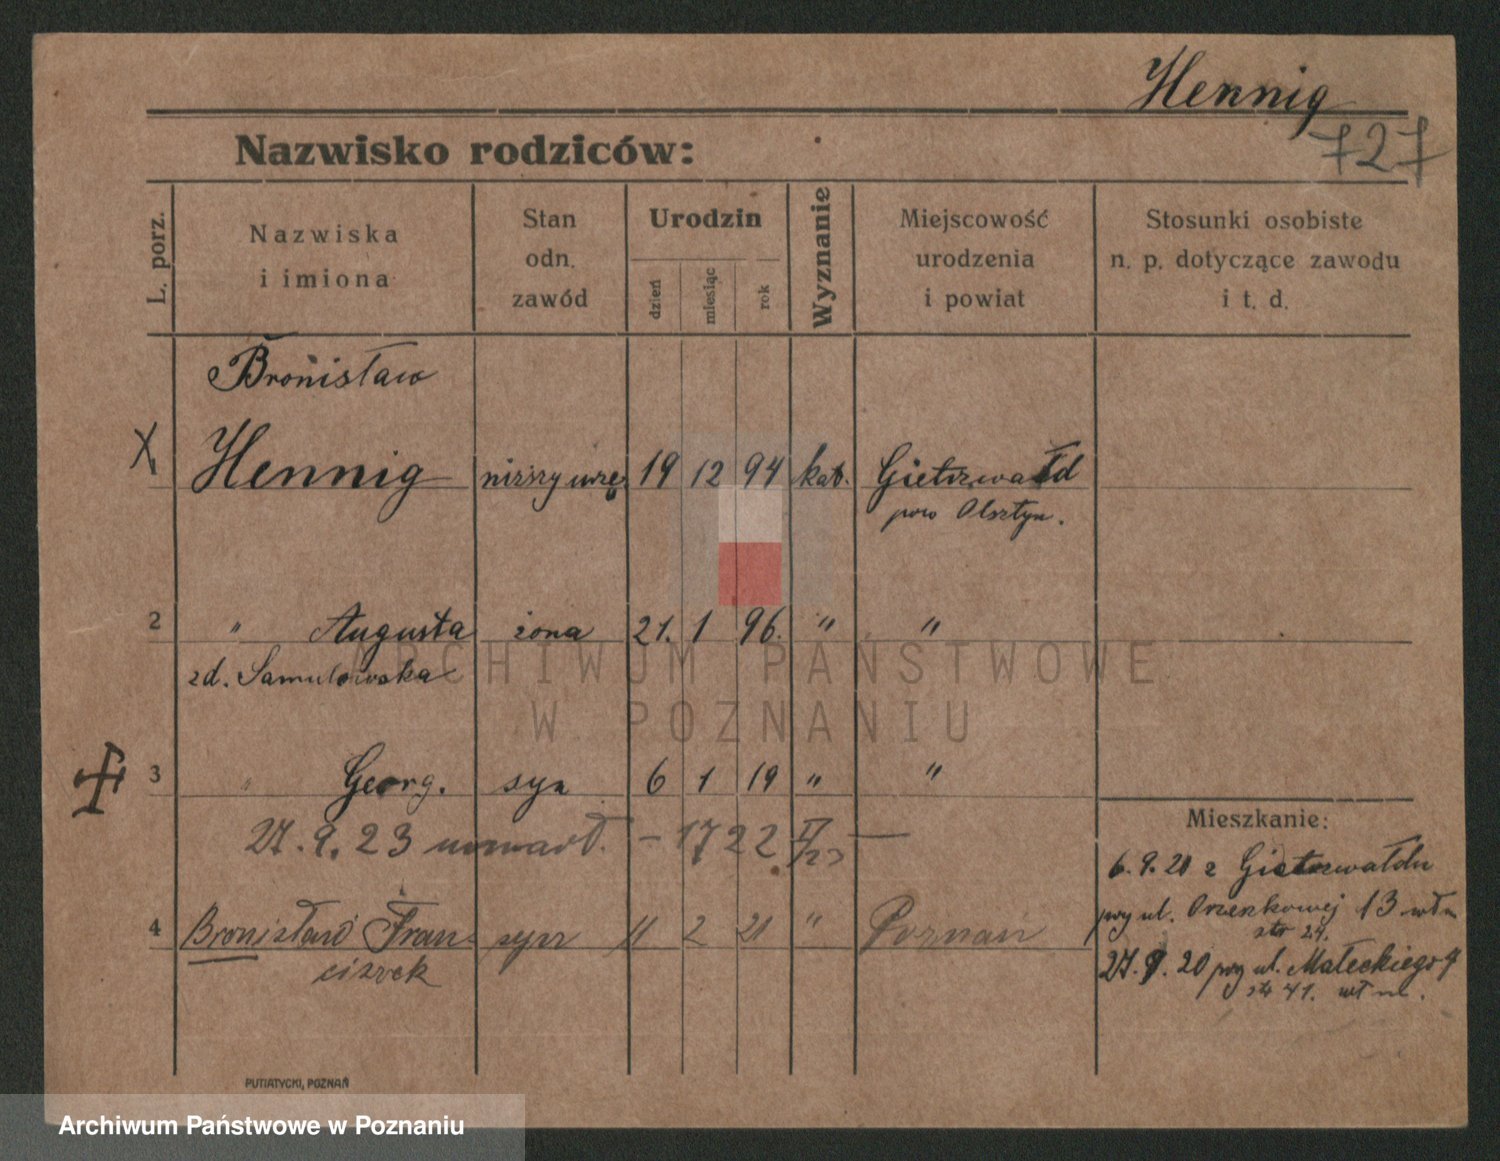 Hennig
727
Nazwisko rodziców:
L. porz.
Nazwiska
i imiona
Stan
odn.
zawód
Urodzin
dzień
miesiąc
rok
Wyznanie
Miejscowość
urodzenia
i powiat
Stosunki osobiste
n. p. dotyczące zawodu
i t. d.
Bronisław
1 Hennig niższy urzę. 19 12 94 kat. Gietrzwałd
pow Olsztyn.
2 " Augusta żona 21. 1 96. " "
zd. Samulowska
3 " Georg. syn 6 1 19 " "
27. 9. 23 umarł. – 1722
Mieszkanie:
6. 9. 20 z Gietrzwałdu
przy ul. Orzeszkowej 13
str 24.
4 Bronisław Fran- syn 11 2 21 " Poznań
ciszek
27. 9. 20 przy ul. Małeckiego
str 41.
PUTIATYCKI, POZNAŃ
ARCHIWUM PAŃSTWOWE
W POZNANIU
Archiwum Państwowe w Poznaniu